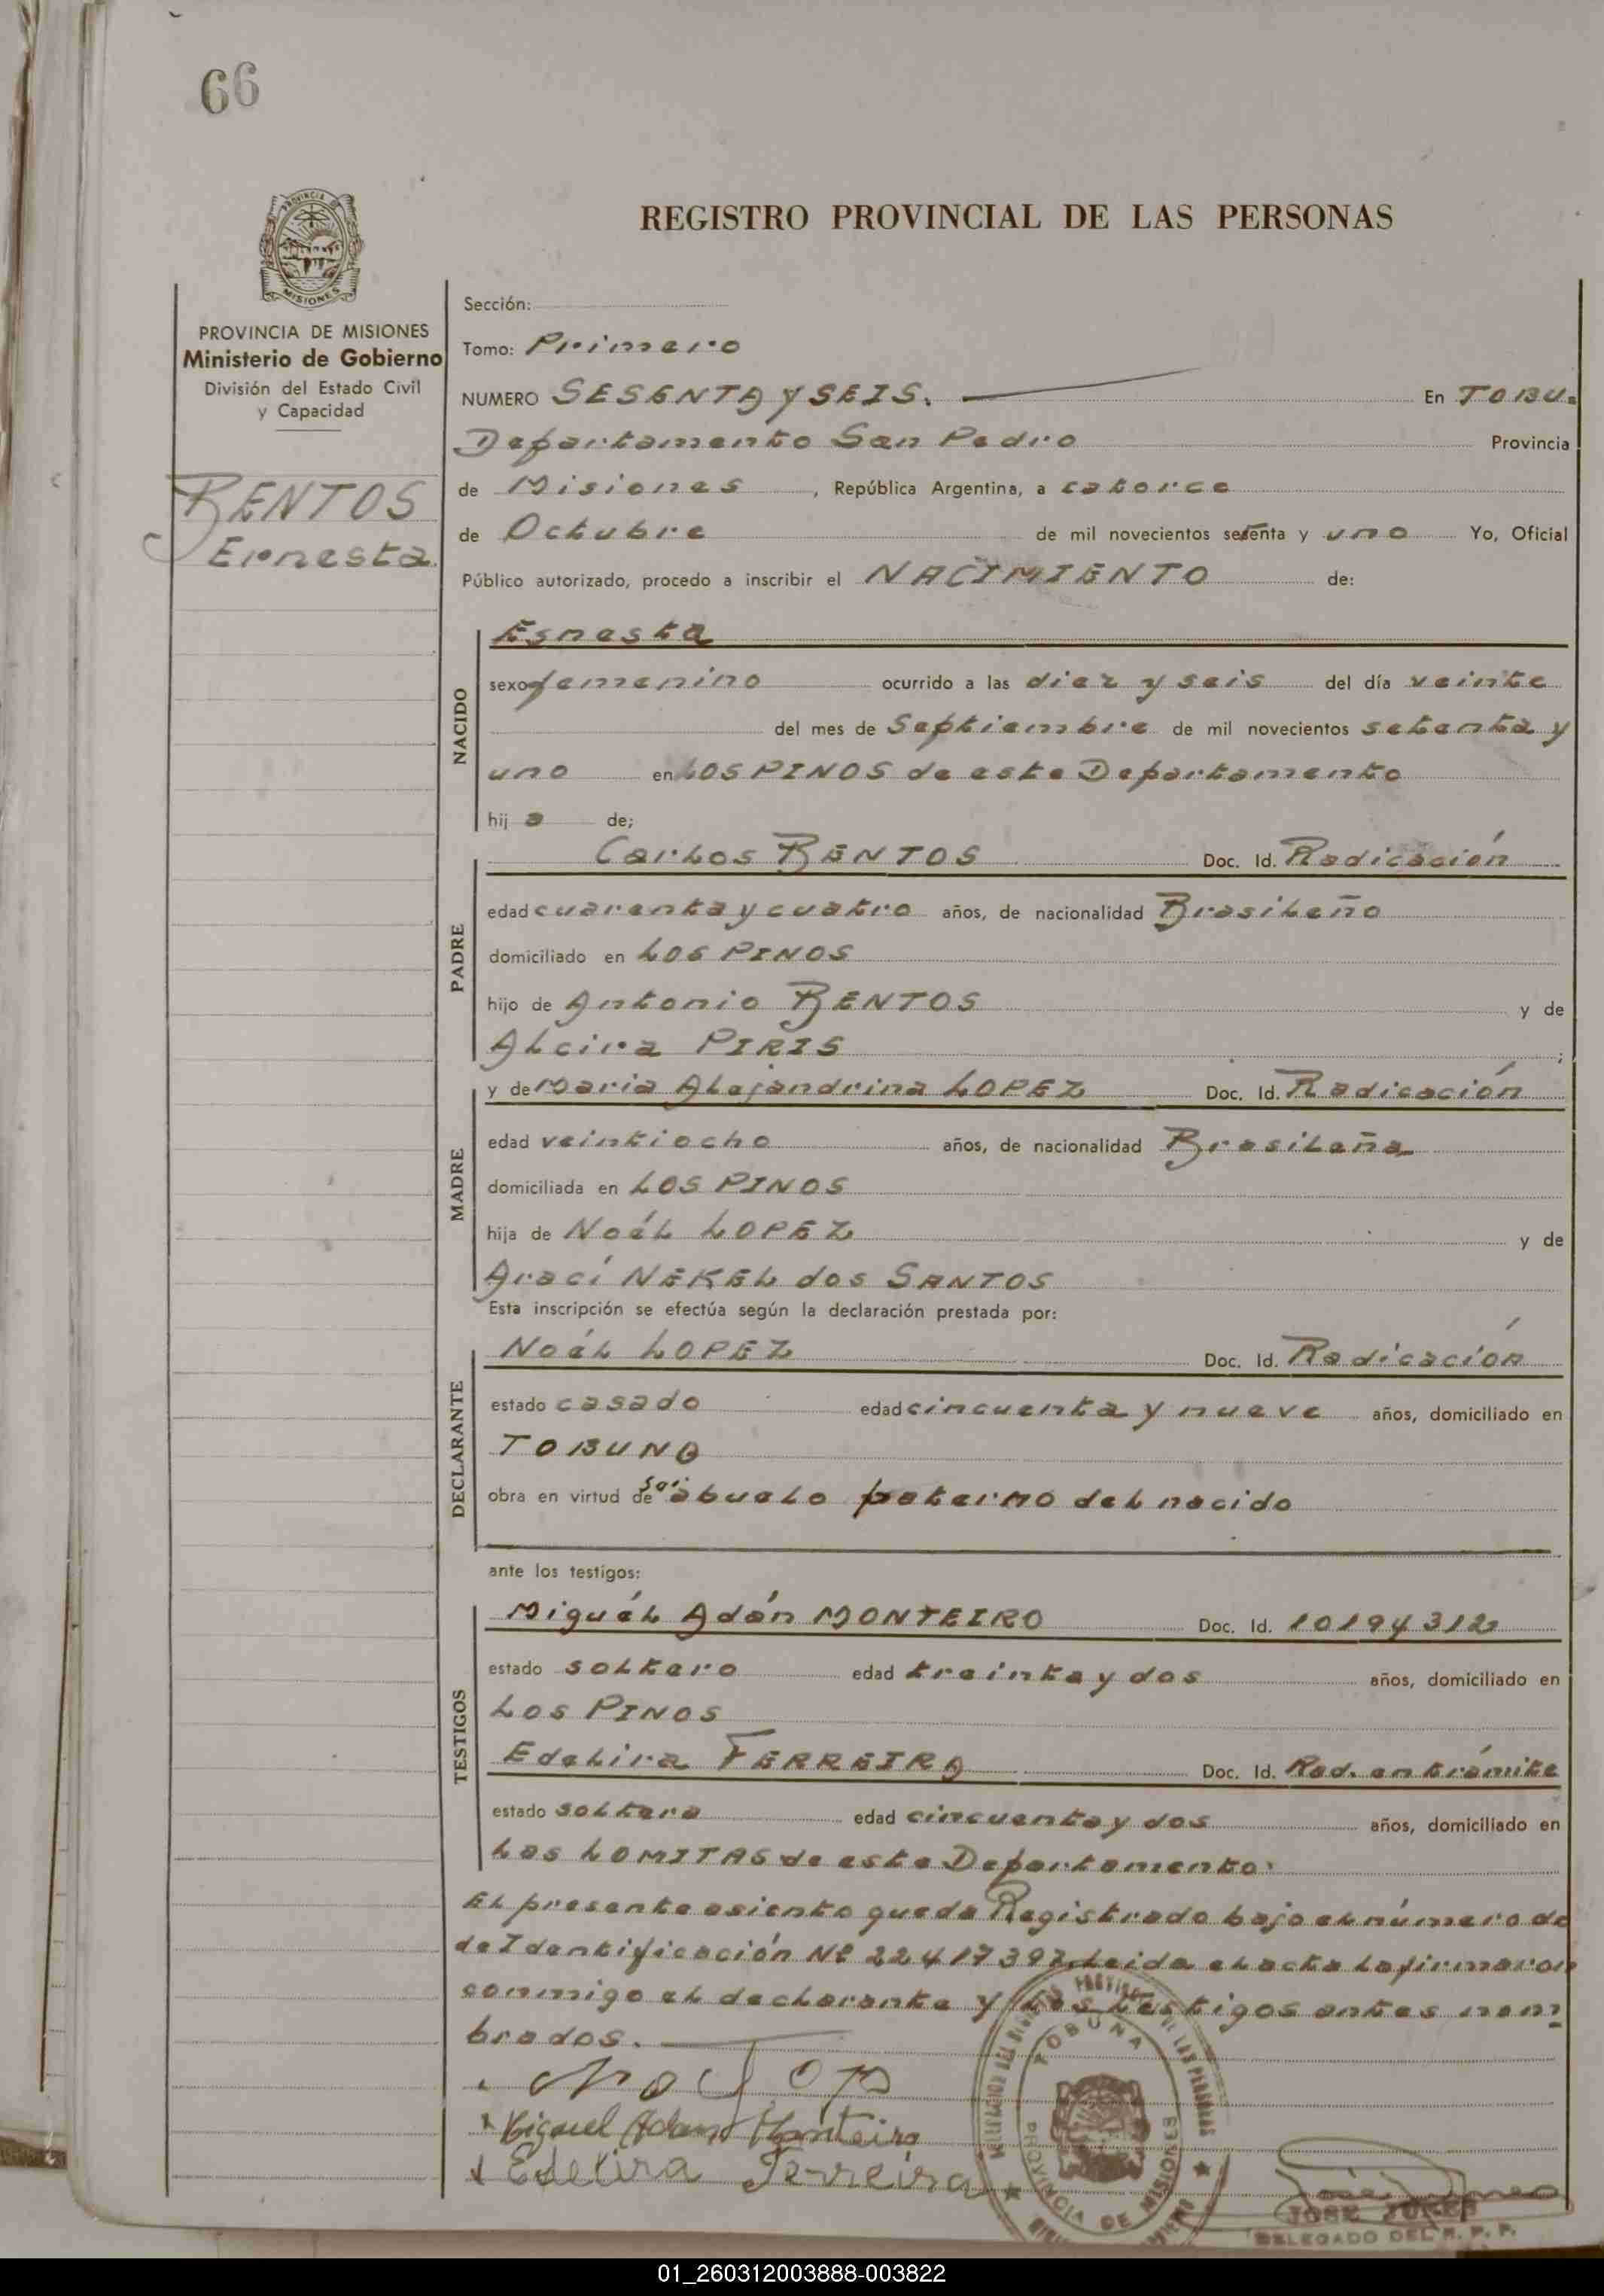 66
PROVINCIA DE
MISIONES
PROVINCIA DE MISIONES
Ministerio de Gobierno
División del Estado Civil
y Capacidad
BENTOS
Ernesta
REGISTRO PROVINCIAL DE LAS PERSONAS
Sección:
Tomo: Primero
NUMERO SESENTA y SEIS. En TOBU.
Departamento San Pedro Provincia
de Misiones, República Argentina, a catorce
de Octubre de mil novecientos setenta y uno Yo, Oficial
Público autorizado, procedo a inscribir el NACIMIENTO de:
NACIDO
Esnesta
sexo femenino ocurrido a las diez y seis del día veinte
del mes de Septiembre de mil novecientos setenta y
uno en LOS PINOS de este Departamento
hij a de;
PADRE
Carlos BENTOS Doc. Id. Radicación
edad cuarenta y cuatro años, de nacionalidad Brasileño
domiciliado en LOS PINOS
hijo de Antonio BENTOS y de
Alcira PIRIS ;
MADRE
y de Maria Alejandrina LOPEZ Doc. Id. Radicación
edad veintiocho años, de nacionalidad Brasileña
domiciliada en LOS PINOS
hija de Noél LOPEZ y de
AracÍ NEKEL dos SANTOS
Esta inscripción se efectúa según la declaración prestada por:
DECLARANTE
Noél LOPEZ Doc. Id. Radicación
estado casado edad cincuenta y nueve años, domiciliado en
TOBUNA
obra en virtud de ser abuelo paterno del nacido
ante los testigos:
TESTIGOS
Miguél Adán MONTEIRO Doc. Id. 10194312
estado soltero edad treinta y dos años, domiciliado en
LOS PINOS
Edelira FERREIRA Doc. Id. Rad. en trámite
estado soltera edad cincuenta y dos años, domiciliado en
Las LOMITAS de este Departamento.
El presente asiento queda Registrado bajo el número de
de Identificación Nº 22417397. Leida el acta la firmaron
conmigo el declarante y los testigos antes nom
brados.
Miguel Adam Monteiro
Edelira Ferreira
TOBUNA
PROVINCIA DE MISIONES
JOSE JUNES
DELEGADO DEL R. P. P.
01_260312003888-003822